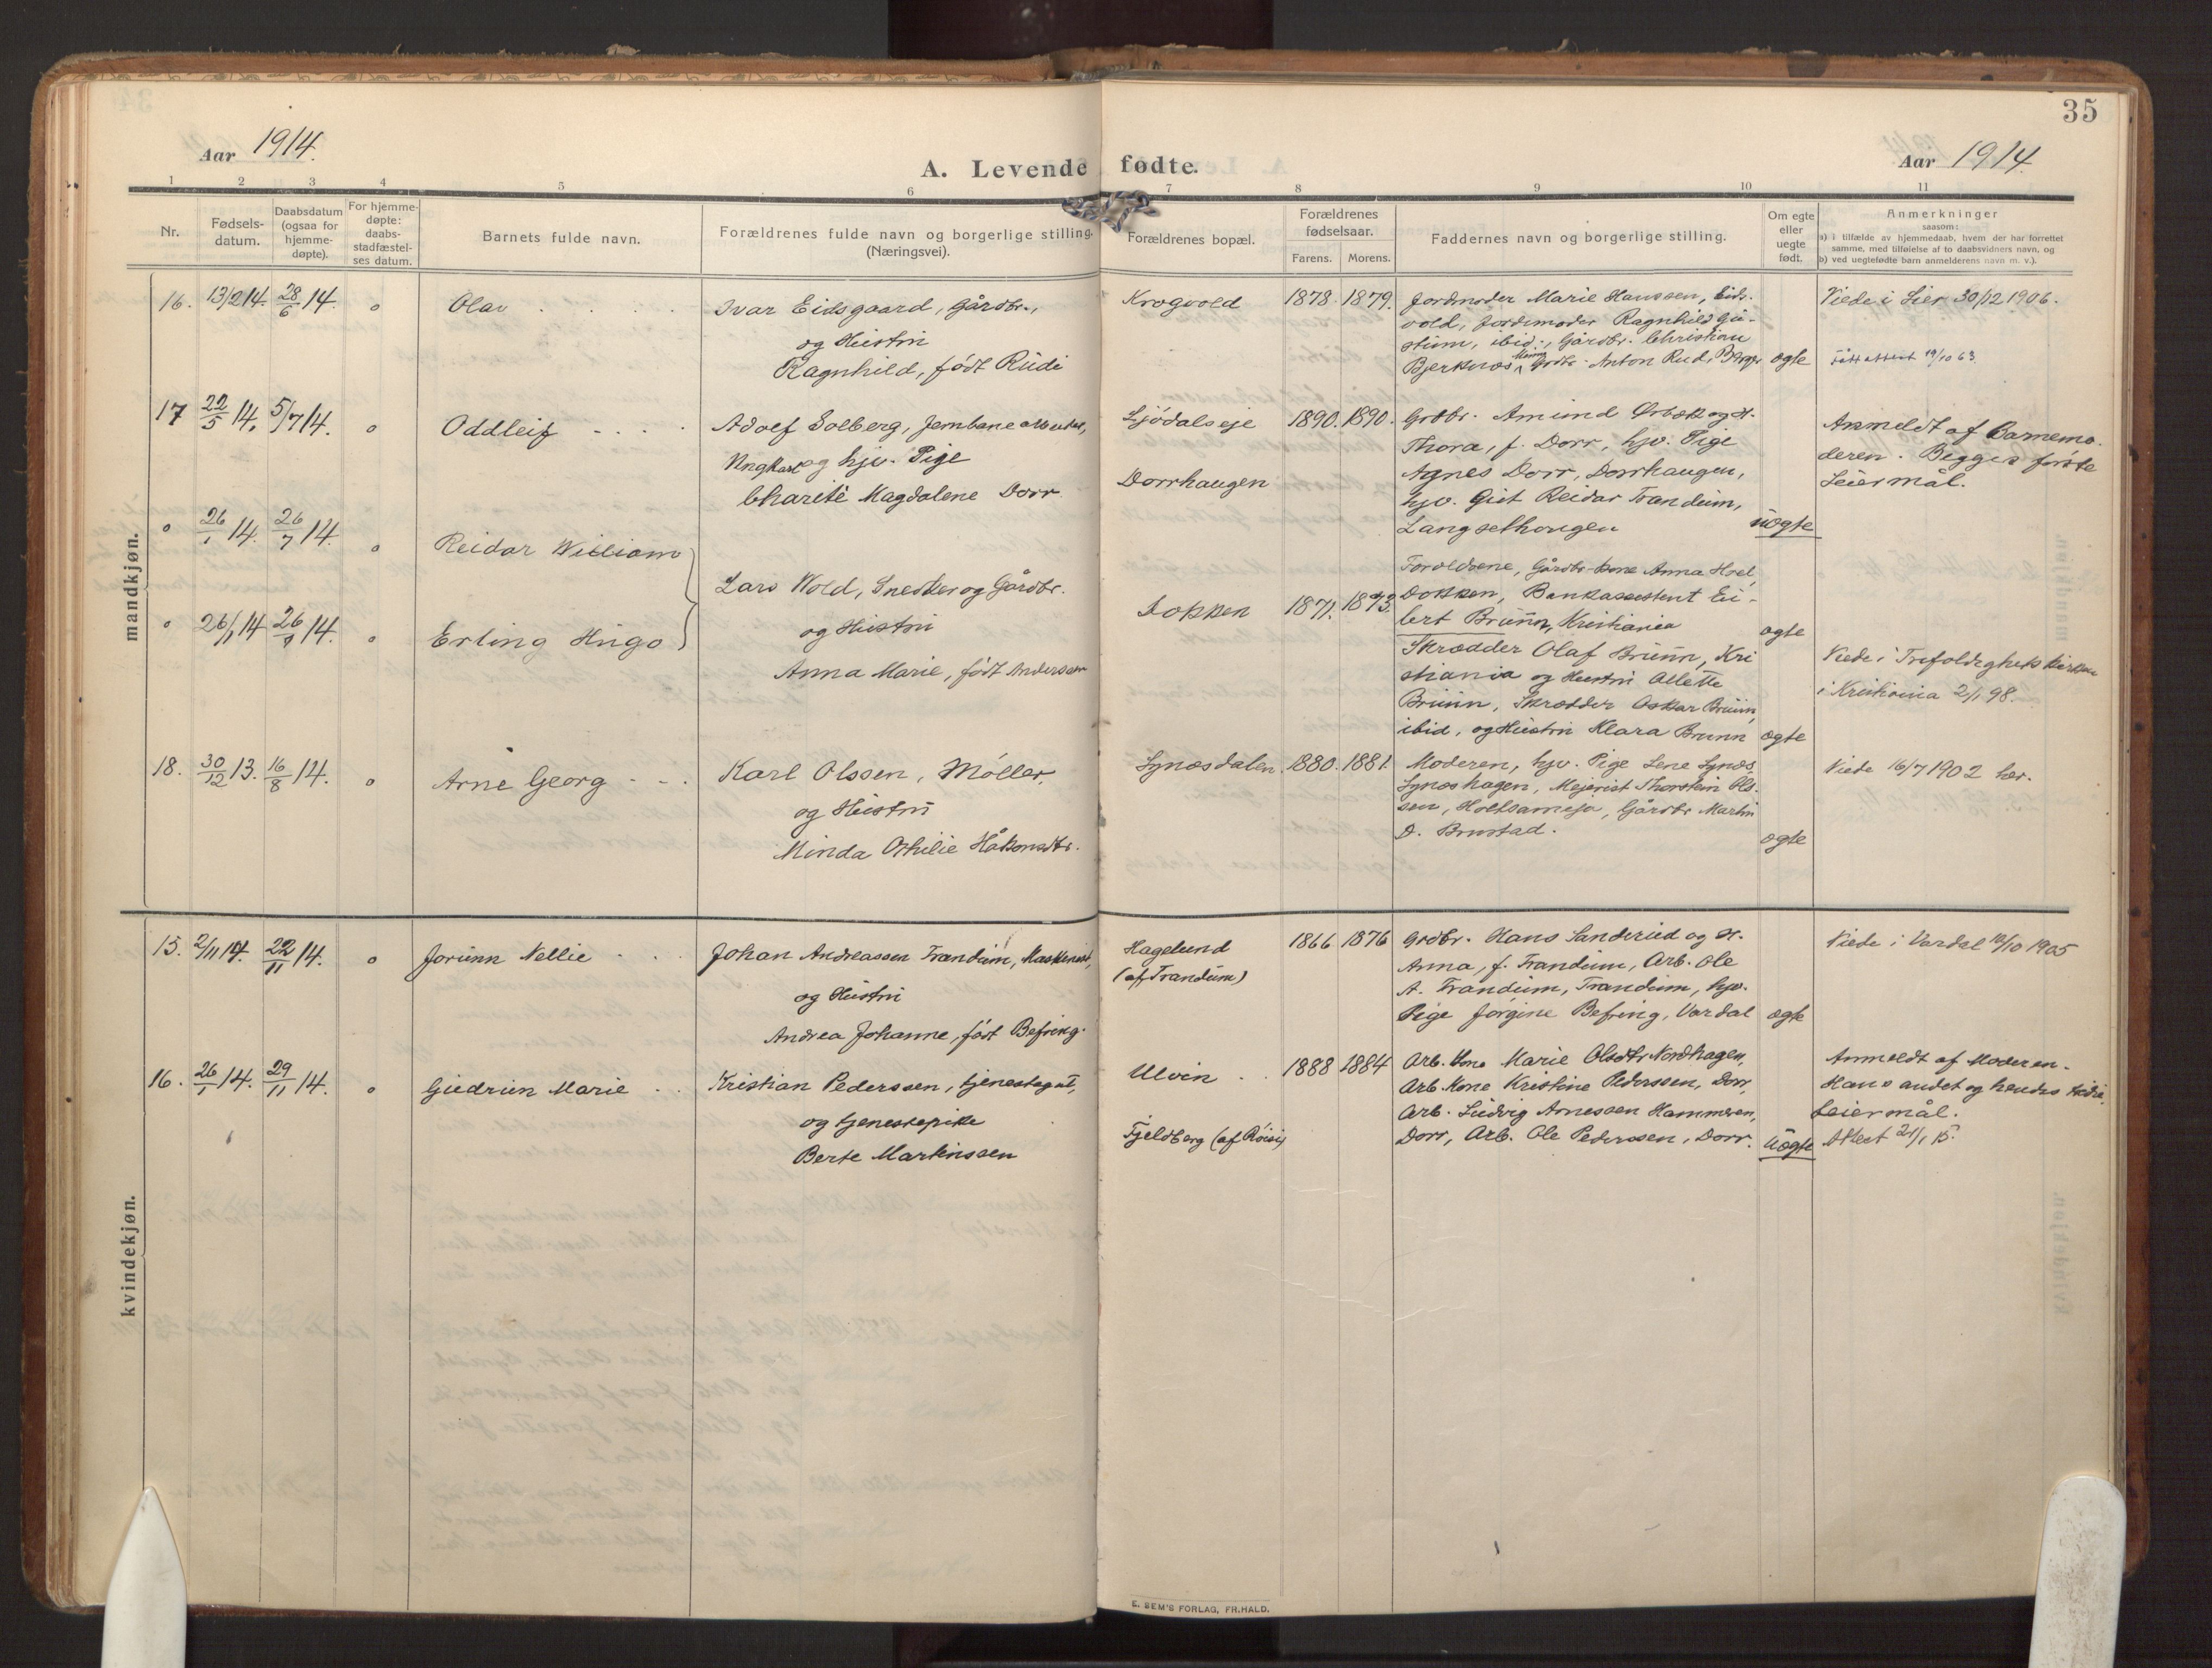 35
Aar 1914.
A. Levende fødte.
Aar 1914.
1 2 3 4 5 6 7 8 9 10 11
Nr.
Fødsels-
datum.
Daabsdatum
(ogsaa for
hjemme-
døpte).
For hjemme-
døpte:
daabs-
stadfæstel-
ses datum.
Barnets fulde navn.
Forældrenes fulde navn og borgerlige stilling.
(Næringsvei).
Forældrenes bopæl.
Forældrenes
fødselsaar.
Farens. Morens.
Faddernes navn og borgerlige stilling.
Om egte
eller
uegte
født.
Anmerkninger
saasom:
a) i tilfælde av hjemmedaab, hvem der har forrettet
samme, med tilføielse af to daabsvidners navn, og
b) ved uegtefødte børn anmelderens navn m. v.).
mandkjøn.
16. 13/2 14. 28/6 14. o Olav
Ivar Eidsgaard, Gårdbr.,
og Hustru
Ragnhild, født Rudi
Krogvold
1878. 1879.
Jordmoder Marie Hanssen, Eids-
vold, Jordemoder Ragnhild
ibid., Gårdbr. Christian
Bjerknæs Grdbr. Anton Rud,
ægte
Viede i Lier 30/12 1906.
attest 19/10 63
17 22/5 14. 5/7 14. o Oddleif
Adolf Solberg, Jernbanearbeider,
Ungkarl og hjv. Pige
Charite Magdalene Dorr
Ljødalseje
Dorrhaugen
1890. 1890.
Grdbr. Amund Ørbæk og H.
Thora, f. Dorr, hjv. Pige
Agnes Dorr, Dorrhaugen,
hjv. Gut Reidar Trandum,
Langsethaugen
uægte
Anmeldt af Barnemo-
deren. Begges første
Leiermål.
o 26/1 14. 26/7 14. o Reidar William
o 26/1 14 26/7 14. o Erling Hugo
Lars Wold, Snedker og Gårdbr.
og Hustru
Anna Marie, født Anderssen
Dokken
1871. 1873.
Forældrene, Gårdbr. kone Anna Hoel,
Dokken, Bankassistent Ei-
lert Brunn, Kristiania
ægte
Skrædder Olaf Brunn, Kri
stiania og Hustru Allette
Brunn, Skrædder Oskar Brunn,
ibid, og Hustru Klara Brunn
ægte
Viede i Trefoldighetskirken
i Kristiania 2/1 98.
18. 30/12 13. 16/8 14. o Arne Georg
Karl Olssen, Møller,
og Hustru
Minda Othilie Håkonsdtr.
Synæsdalen
1880. 1881.
Moderen, hjv. Pige Lene Synæs,
Synæshagen, Mejerist Thorstein Ols-
sen, Gårdbr Martin
D. Brustad.
ægte
Viede 16/7 1902 her.
kvindekjøn.
15. 2/11 14. 22/11 14. o Jorunn Nellie
Johan Andreassen Trandum, Maskinist,
og Hustru
Andrea Johanne, født Befring.
Hagelund
(af Trandum)
1866. 1876
Grdbr. Hans Sanderud og H.
Anna, f. Trandum, Arb. Ole
A. Trandum, Trandum, hjv.
Pige Jørgine Befring, Vardal
ægte
Viede i Vardal 18/10 1905
16. 26/1 14. 29/11 14. o Gudrun Marie
Kristian Pederssen, tjenestegut,
og tjenestepike
Berte Martinssen
Ulvin
Fjeldberg (af Røisi)
1888 1884
Arb. kone Marie Olsdtr Nordhagen,
Arb. Kone Kristine Pederssen, Dorr,
Arb. Ludvig Arnessen Hammeren,
Dorr, Arb. Ole Pederssen, Dorr.
uægte
Anmeldt af Moderen.
Hans andet og hendes tredie
Leiermål.
Attest 21/1 15.
E. SEM'S FORLAG, FR.HALD.